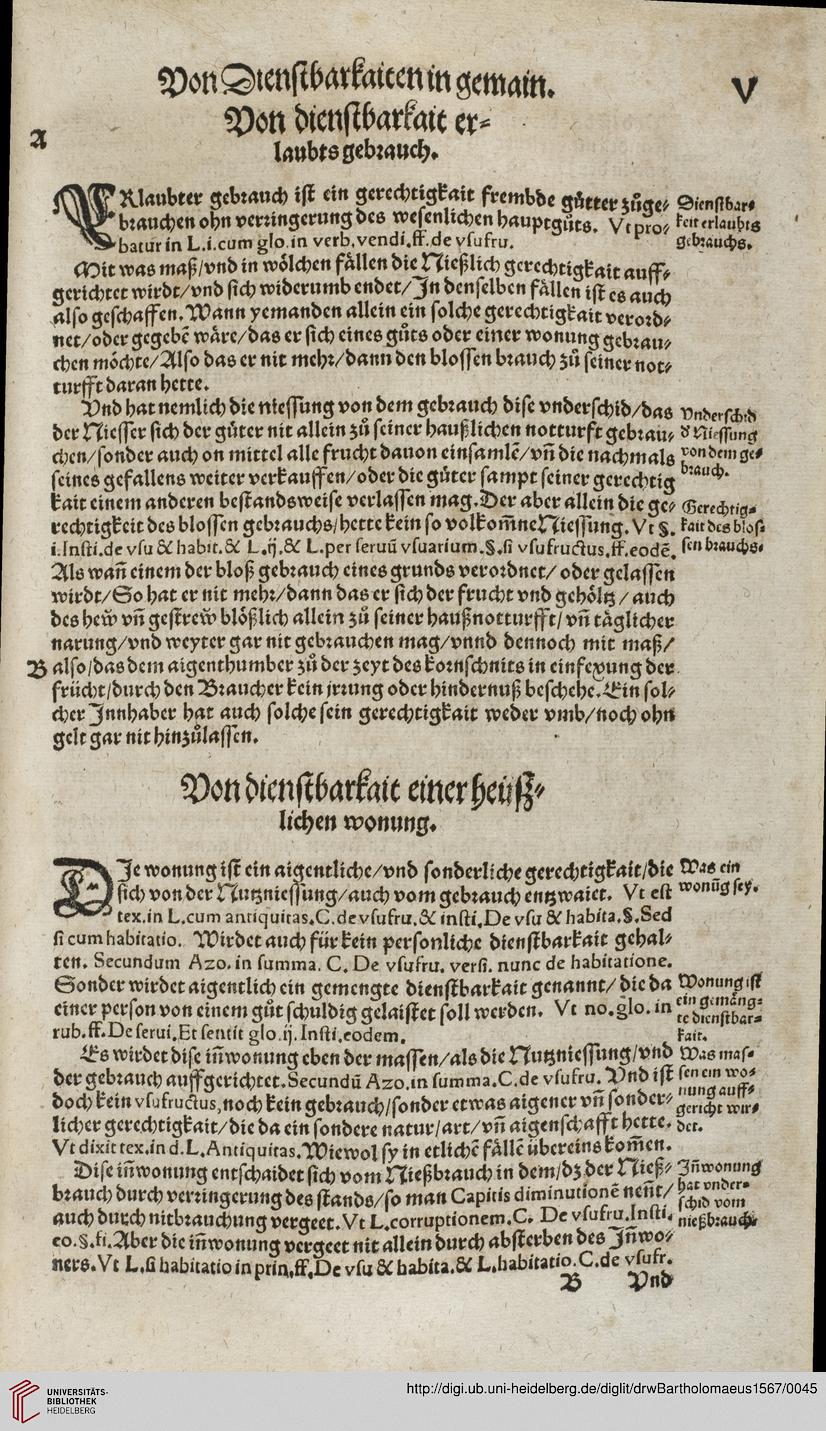 Von Dienstbarkaiten in gemain.
V
Von dienstbarkait er⸗
A
laubts gebrauch.
ERlaubter gebrauch ist ein gerechtigkait frembde gůtter zůge⸗
brauchen ohn verringerung des wesenlichen hauptgůts. Vt pro⸗
batur in L.i.cum glo.in verb.vendi.ff.de vsufru.
Dienstbar⸗
keit erlaubts
gebrauchs.
Mit was maß/vnd in wölchen fällen die Nießlich gerechtigkait auff⸗
gerichtet wirdt/vnd sich widerumb endet/In denselben fällen ist es auch
also geschaffen. Wann yemanden allein ein solche gerechtigkait verord⸗
net/oder gegebē wäre/das er sich eines gůts oder einer wonung gebrau⸗
chen möchte/Also das er nit mehr/dann den blossen brauch zů seiner not⸗
turfft daran hette.
Vnd hat nemlich die niessung von dem gebrauch dise vnderschid/das
der Niesser sich der güter nit allein zů seiner haußlichen notturft gebrau⸗
chen/sonder auch on mittel alle frucht dauon einsamlē/vñ die nachmals
seines gefallens weiter verkauffen/oder die güter sampt seiner gerechtig
kait einem anderen bestandsweise verlassen mag. Der aber allein die ge⸗
rechtigkeit des blossen gebrauchs/hette kein so volkom̃ne Niessung. Vt §.
i.Insti.de vsu & habit.& L.ij.& L.per seruū vsuarium.§.si vsufructus.ff.eodē.
Als wañ einem der bloß gebrauch eines grunds verordnet/ oder gelassen
wirdt/So hat er nit mehr/dann das er sich der frucht vnd gehöltz/ auch
des hew̆ vñ gestrew̆ blößlich allein zů seiner haußnotturfft/ vñ täglicher
narung/vnd weyter gar nit gebrauchen mag/vnnd dennoch mit maß/
B also/das dem aigenthumber zů der zeyt des kornschnits in einfexung der
frücht/durch den Braucher kein jrrung oder hindernuß beschehe. Ein sol⸗
cher Innhaber hat auch solche sein gerechtigkait weder vmb/noch ohn
gelt gar nit hinzůlassen.
Vnderschid
d' Niessung
von dem ge⸗
brauch.
Gerechtig⸗
kait des blos⸗
sen brauchs.
Von dienstbarkait einer heüß⸗
lichen wonung.
DIe wonung ist ein aigentliche/vnd sonderliche gerechtigkait/die
sich von der Nutzniessung/auch vom gebrauch entzwaiet. Vt est
tex.in L.cum antiquitas.C.de vsufru.& insti.De vsu & habita.§.Sed
si cum habitatio. Wirdet auch für kein personliche dienstbarkait gehal⸗
ten. Secundum Azo.in summa. C. De vsufru. versi. nunc de habitatione.
Sonder wirdet aigentlich ein gemengte dienstbarkait genannt/ die da
einer person von einem gůt schuldig gelaistet soll werden. Vt no.glo.in
rub.ff.De serui.Et sentit glo.ij.Insti.eodem.
Was ein
wonūg sey.
Wonung ist
ein gemäng⸗
te dienstbar⸗
kait.
Es wirdet dise iñwonung eben der massen/als die Nutzniessung/vnd
der gebrauch auffgerichtet. Secundū Azo.in summa.C.de vsufru. Vnd ist
doch kein vsufructus,noch kein gebrauch/sonder etwas aigener vñ sonder⸗
licher gerechtigkait/die da ein sondere natur/art/vñ aigenschafft hette.
Vt dixit tex.in d.L.Antiquitas. Wiewol sy in etlichē fällē übereins kom̃en.
Was mas⸗
sen ein wo⸗
nung auff⸗
gericht wir⸗
det.
Dise iñwonung entschaidet sich vom Nießbrauch in dem/dz der Nieß⸗
brauch durch verringerung des stands/so man Capitis diminutionē neñt/
auch durch nitbrauchung vergeet. Vt L.corruptionem.C. De vsufru.Insti.
eo.§.fi. Aber die iñwonung vergeet nit allein durch absterben des Iñwo⸗
ners. Vt L.si habitatio in prin.ff.De vsu & habita.& L.habitatio.C.de vsufr.
Iñwonung
hat vnder⸗
schid vom
nießbrauch.
B Vnd
UNIVERSITÄTS-
BIBLIOTHEK
HEIDELBERG
http://digi.ub.uni-heidelberg.de/diglit/drwBartholomaeus1567/0045